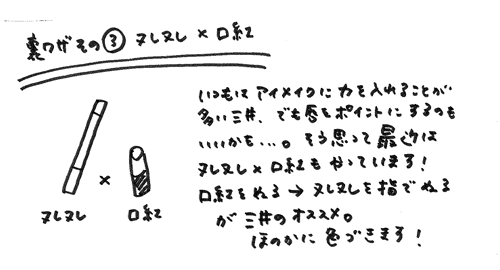 裏ワザその③ ヌレヌレ × 口紅
いつもは アイメイクに 力を入れることが
多い三井、でも唇をポイントにするのも
いいかも…。そう思って最近は
ヌレヌレ×口紅もやっています！
口紅をぬる → ヌレヌレを指でぬる
が 三井のオススメ。
ほのかに 色づきます！
×
ヌレヌレ 口紅